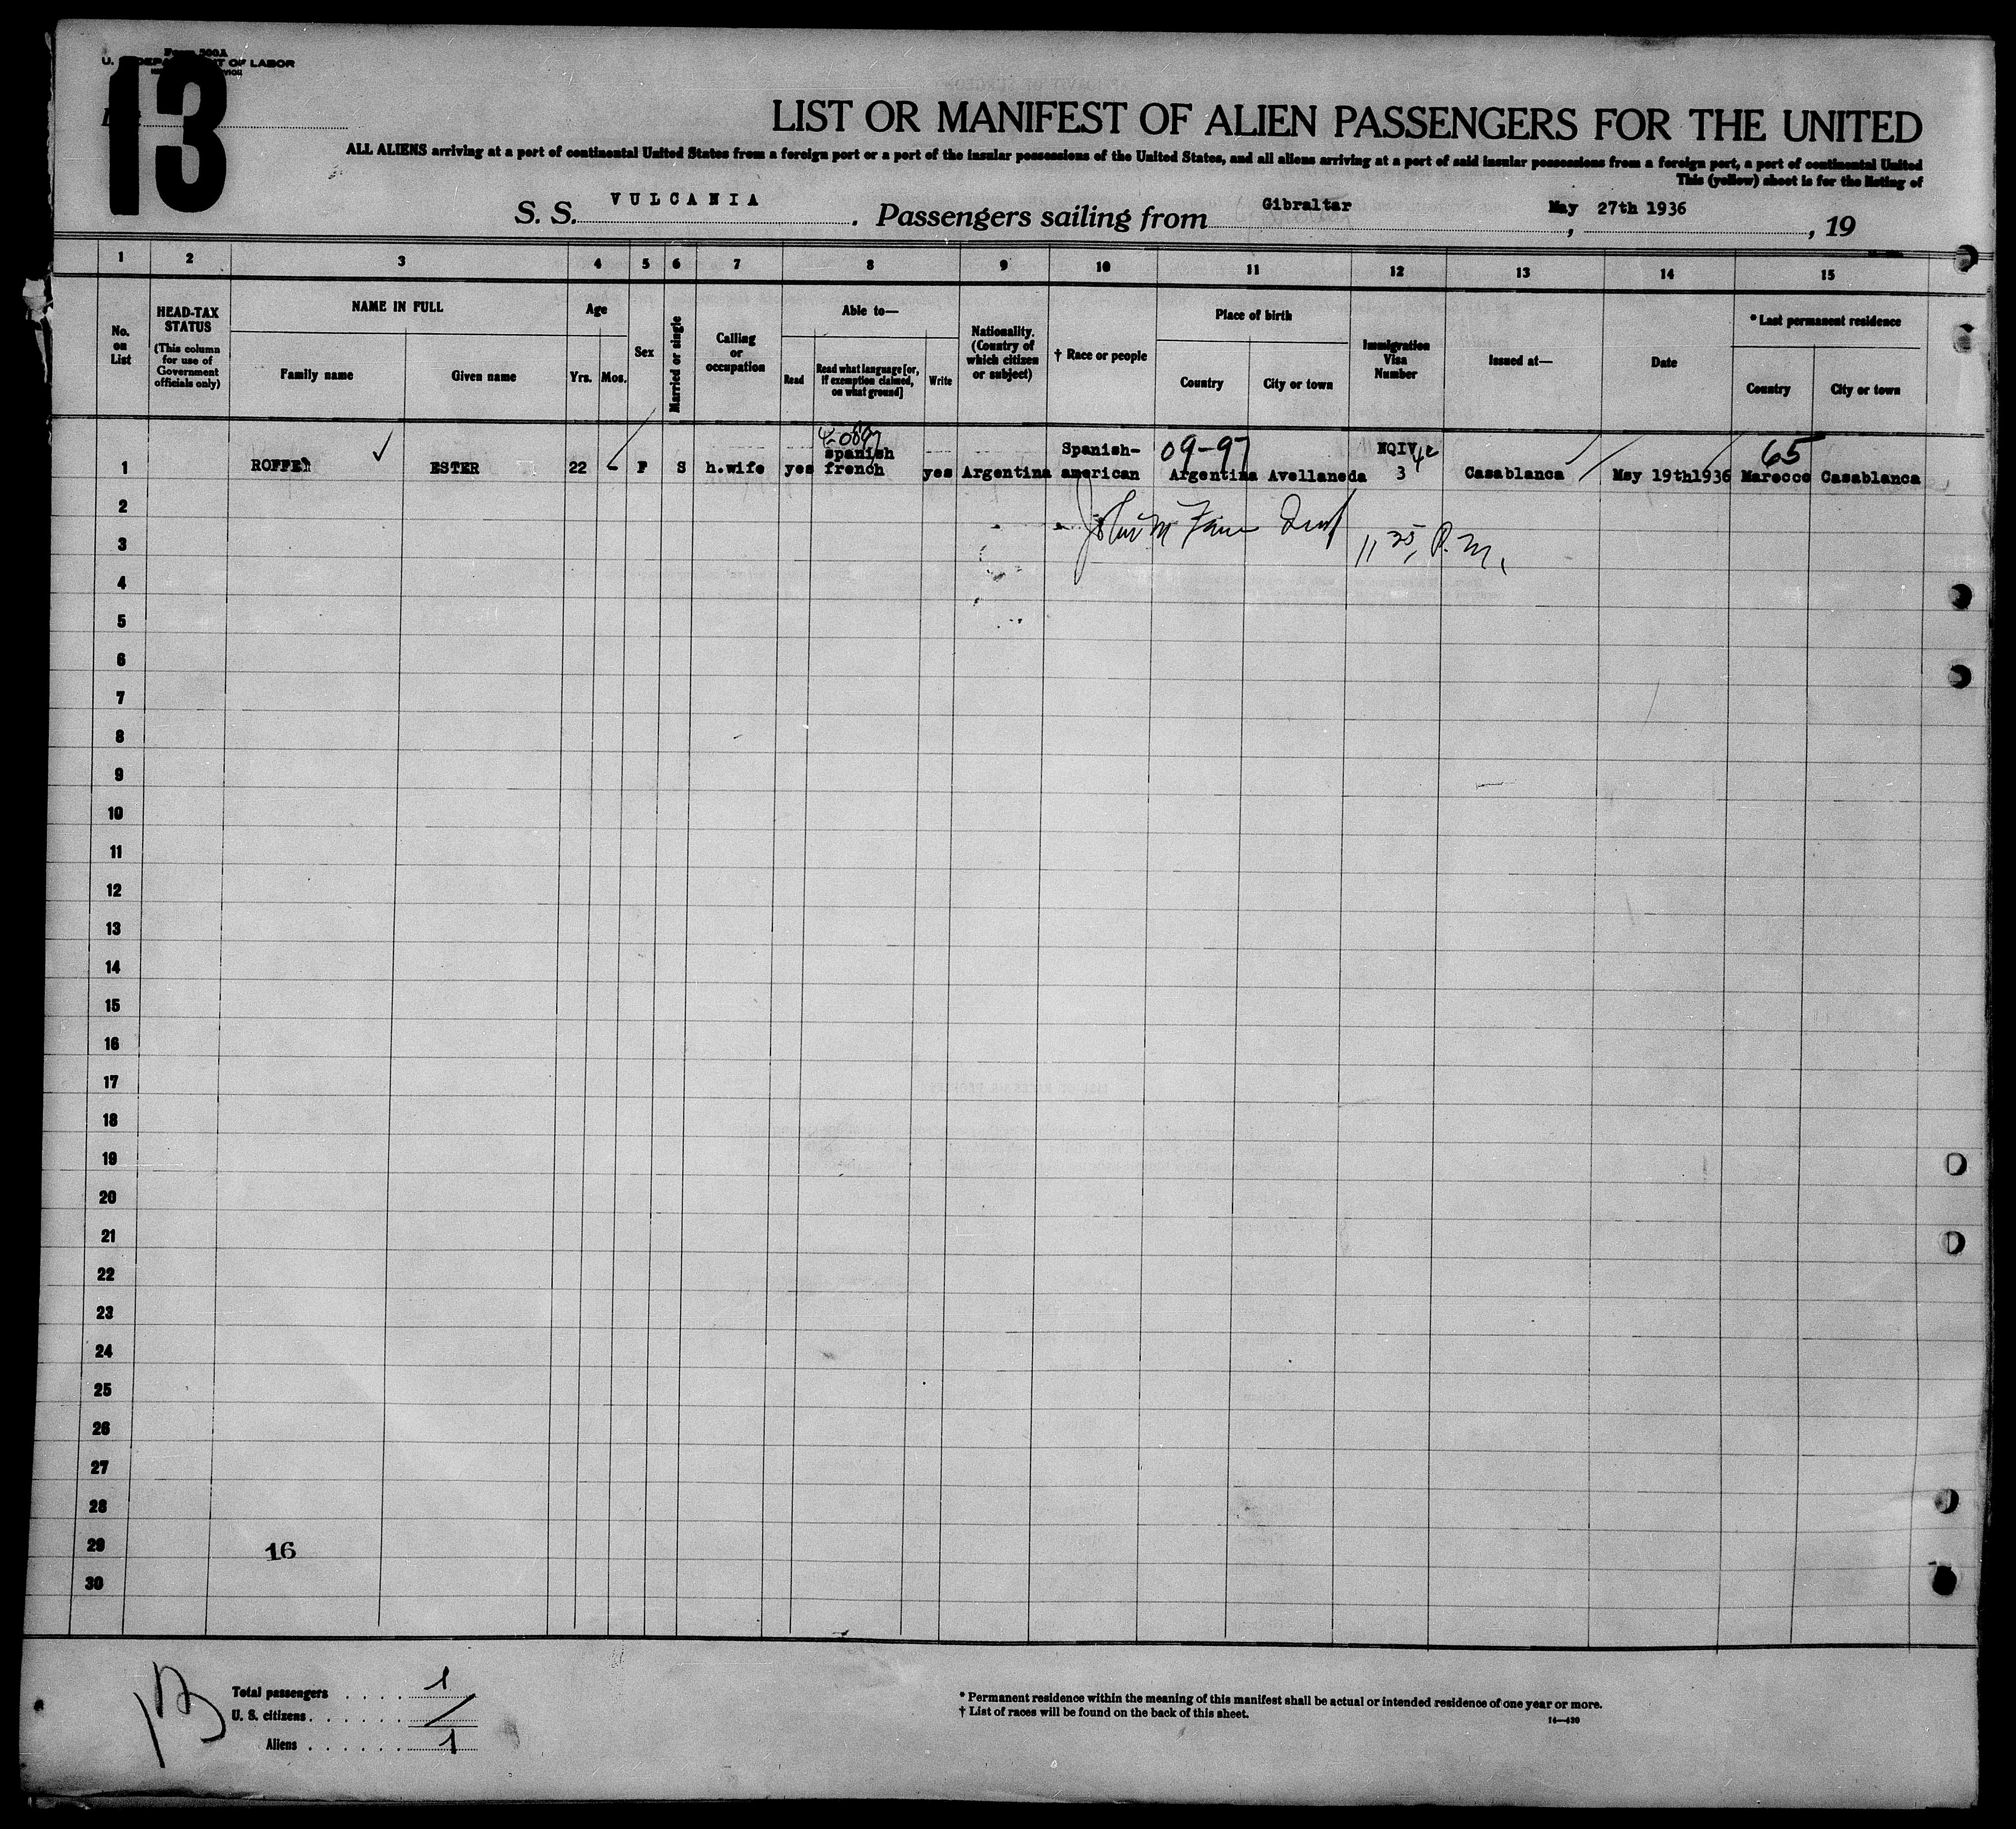 Form 500A
U. S. DEPARTMENT OF LABOR
13
LIST OR MANIFEST OF ALIEN PASSENGERS FOR THE UNITED
ALL ALIENS arriving at a port of continental United States from a foreign port or a port of the insular possessions of the United States, and all aliens arriving at a port of said insular possessions from a foreign port, a port of continental United
This (yellow) sheet is for the listing of
S. S. VULCANIA. Passengers sailing from Gibraltar, May 27th 1936, 19
1 2 3 4 5 6 7 8 9 10 11 12 13 14 15
No. on List
HEAD-TAX STATUS
(This column for use of Government officials only)
NAME IN FULL
Family name
Given name
Age
Yrs. Mos.
Sex
Married or single
Calling or occupation
Able to—
Read
Read what language [or, if exemption claimed, on what ground]
Write
Nationality. (Country of which citizen or subject)
† Race or people
Place of birth
Country
City or town
Immigration Visa Number
Issued at—
Date
* Last permanent residence
Country
City or town
spanish Spanish- 09-97 NQIV 65
1 ROFFE ✓ ESTER 22 - F S h.wife yes french yes Argentina american Argentina Avellaneda 3 Casablanca May 19th1936 Marocco Casablanca
2
John M
3
11 25 P.M.
4
5
6
7
8
9
10
11
12
13
14
15
16
17
18
19
20
21
22
23
24
25
26
27
28
29 16
30
13
Total passengers . . . . 1
U. S. citizens . . . . . . /
Aliens . . . . . . 1
* Permanent residence within the meaning of this manifest shall be actual or intended residence of one year or more.
† List of races will be found on the back of this sheet.
14—420